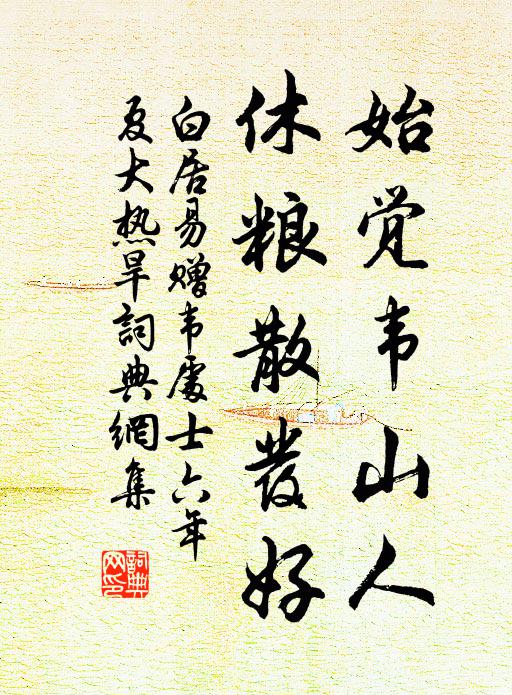 始觉韦山人
休粮散发好
白居易赠韦处士六年
夏大热旱詞典網集
詞典
网印